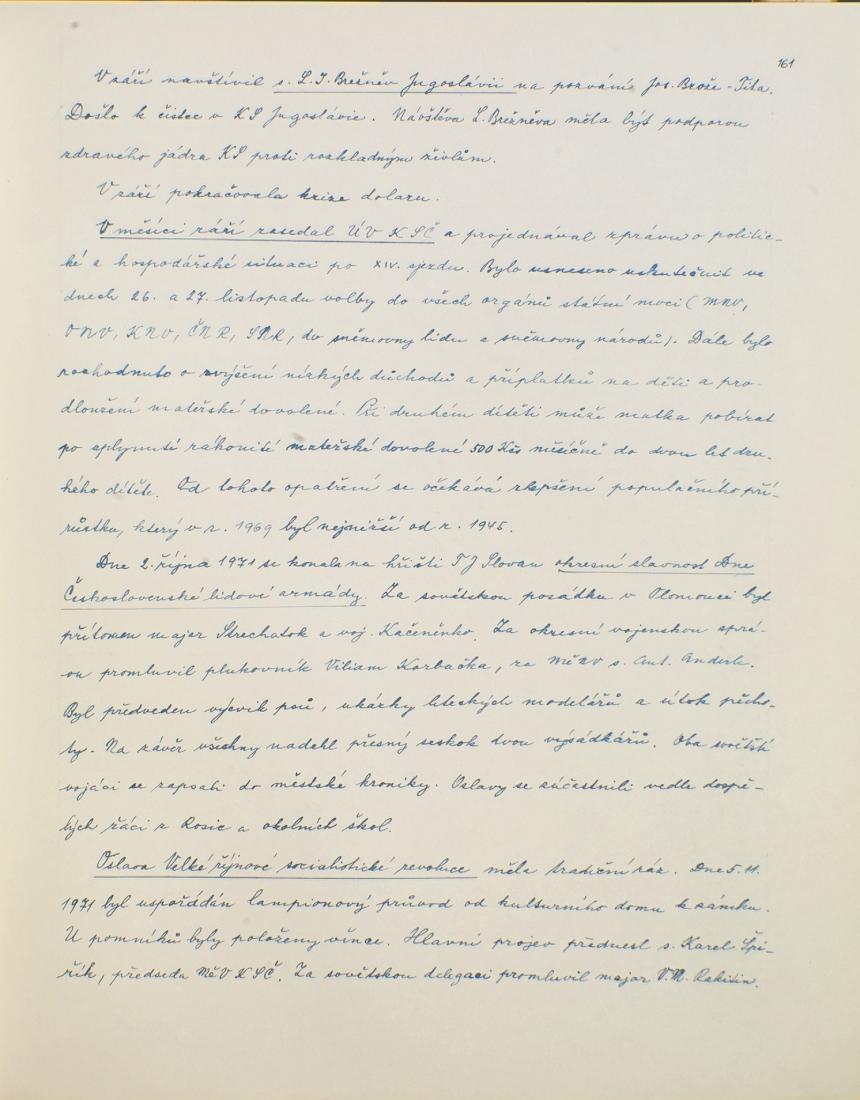 161
V září navštívil s. L. I. Brežněv Jugoslávii na pozvání Jos. Broze - Tita.
Došlo k čistce v KS Jugoslávie. Návštěva L. Brežněva měla být podporou
zdravého jádra KS proti rozkladným živlům.
V září pokračovala krize dolaru.
V měsíci září zasedal ÚV KSČ a projednával zprávu o politic-
ké a hospodářské situaci po XIV. sjezdu. Bylo usneseno uskutečnit ve
dnech 26. a 27. listopadu volby do všech orgánů státní moci (MNV,
ONV, KNV, ČNR, SNR, do sněmovny lidu a sněmovny národů). Dále bylo
rozhodnuto o zvýšení nízkých důchodů a příplatků na děti a pro-
dloužení mateřské dovolené. Při druhém dítěti může matka pobírat
po uplynutí zákonité mateřské dovolené 500 Kčs měsíčně do dvou let dru-
hého dítěte. Od tohoto opatření se očekává zlepšení populačního pří-
růstku, který v r. 1969 byl nejnižší od r. 1945.
Dne 2. října 1971 se konala na hřišti TJ Slovan okresní slavnost Dne
Československé lidové armády. Za sovětskou posádku v Olomouci byl
přítomen major Strechatok a voj. Kačeněnko. Za okresní vojenskou sprá-
vu promluvil plukovník Viliam Korbačka, za MěNV s. Ant. Anderle.
Byl předveden výcvik psů, ukázky leteckých modelářů a útok pěcho-
ty. Na závěr všechny nadchl přesný seskok dvou výsadkářů. Oba sovětští
vojáci se zapsali do městské kroniky. Oslavy se zúčastnili vedle dospě-
lých žáci z Rosic a okolních škol.
Oslava Velké říjnové socialistické revoluce měla tradiční ráz. Dne 5. 11.
1971 byl uspořádán lampionový průvod od kulturního domu k zámku.
U pomníků byly položeny věnce. Hlavní projev přednesl s. Karel Špi-
řík, předseda MěV KSČ. Za sovětskou delegaci promluvil major V. N. Rakitin.